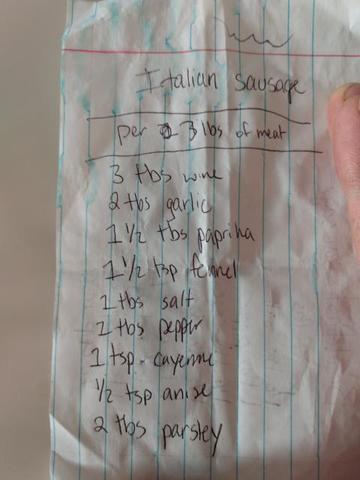 Italian sausage
per 3 lbs of meat
3 tbs wine
2 tbs garlic
1 1/2 tbs paprika
1 1/2 tsp fennel
1 tbs salt
tbs pepper
1 tsp. cayenne
1/2 tsp anise
2 tbs parsley